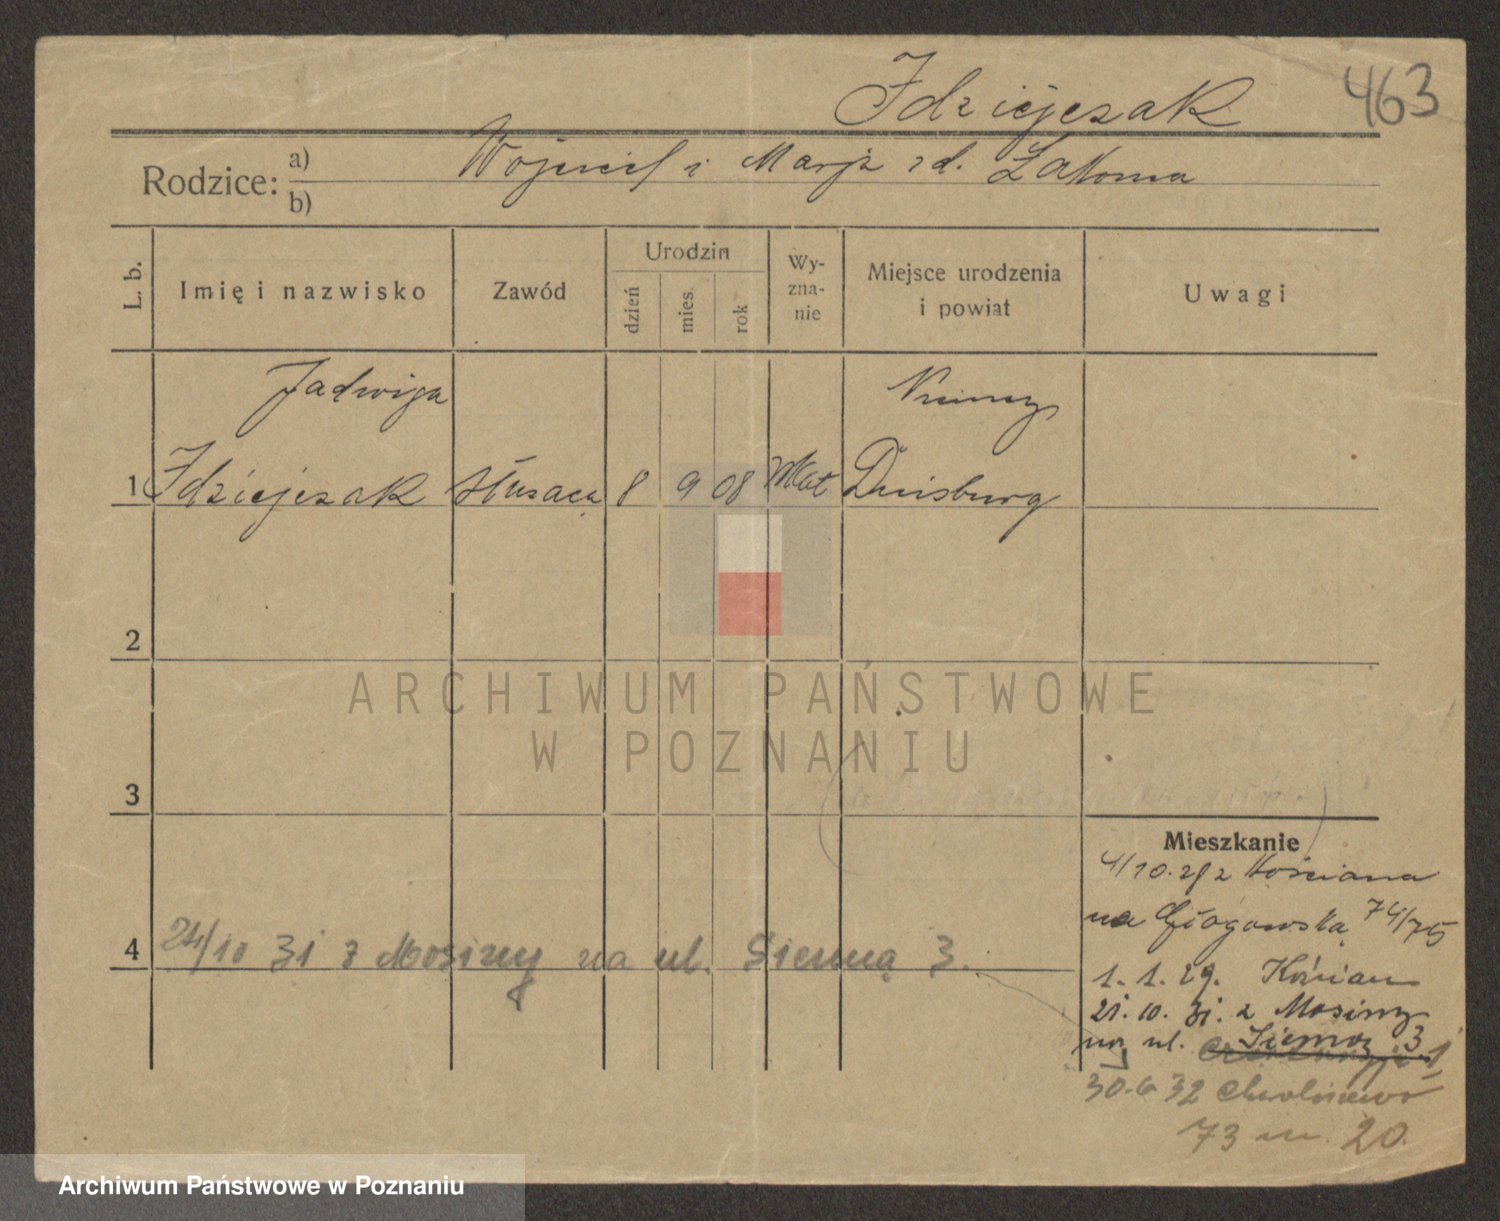 Idziejczak 463
Rodzice: a) b)
Wojciech i Marja zd. Łakoma
L. b.
Imię i nazwisko
Zawód
Urodzin
dzień
mies.
rok
Wy-
zna-
nie
Miejsce urodzenia
i powiat
Uwagi
Jadwiga
Niemcy
1 Idziejczak służąca 8 9 08 kat Duisburg
2
ARCHIWUM PAŃSTWOWE
W POZNANIU
3
Mieszkanie
4/10.28 z Kościana
na Głogowską 74/75
4
24/10 31 z Mosiny na ul. Sienną 3.
1. 1. 29. Kościan
21. 10. 31. z Mosiny
na ul. Sienną 3
30.6 32
73 m. 20.
Archiwum Państwowe w Poznaniu